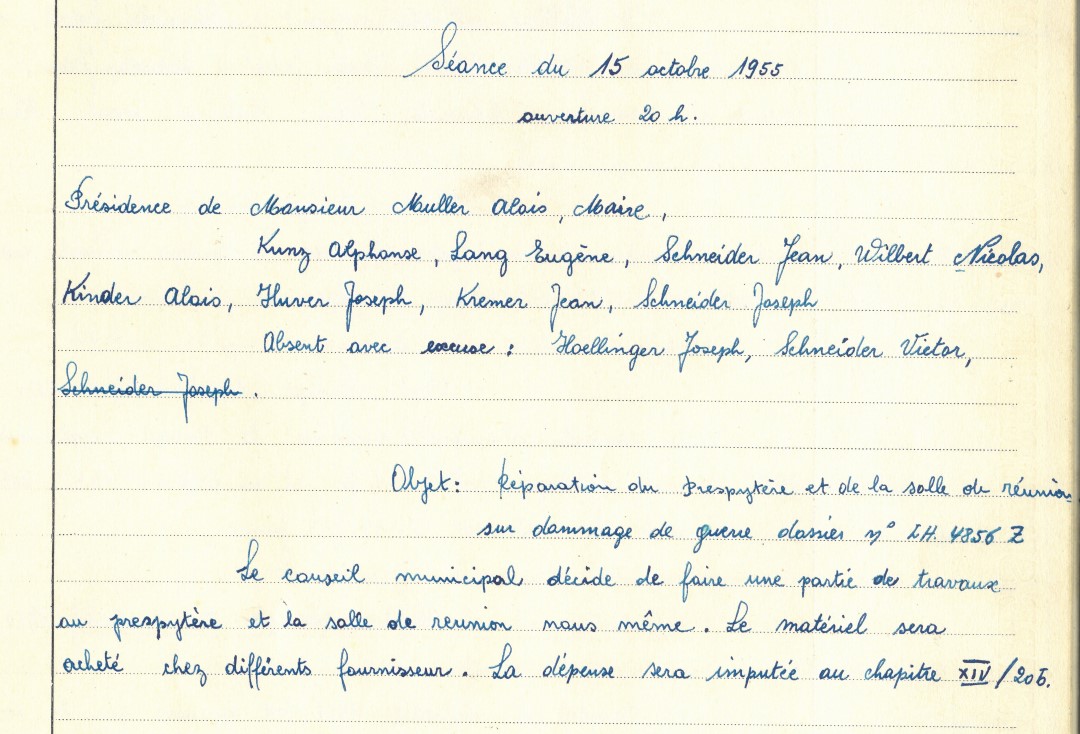 Séance du 15 octobre 1955
ouverture 20 h.
Présidence de Monsieur Muller Alois, Maire,
Kunz Alphonse, Lang Eugène, Schneider Jean, Wilbert Nicolas,
Kinder Alois, Huver Joseph, Kremer Jean, Schneider Joseph
Absent avec excuse : Hoellinger Joseph, Schneider Victor,
Schneider Joseph.
Objet: Réparation du Prespytère et de la salle de réunion
sur dammage de guerre dossier n° LH. 4856 Z
Le conseil municipal décide de faire une partie de travaux
au prespytère et la salle de reunion nous même. Le matériel sera
acheté chez différents fournisseur. La dépense sera imputée au chapitre XIV/205.